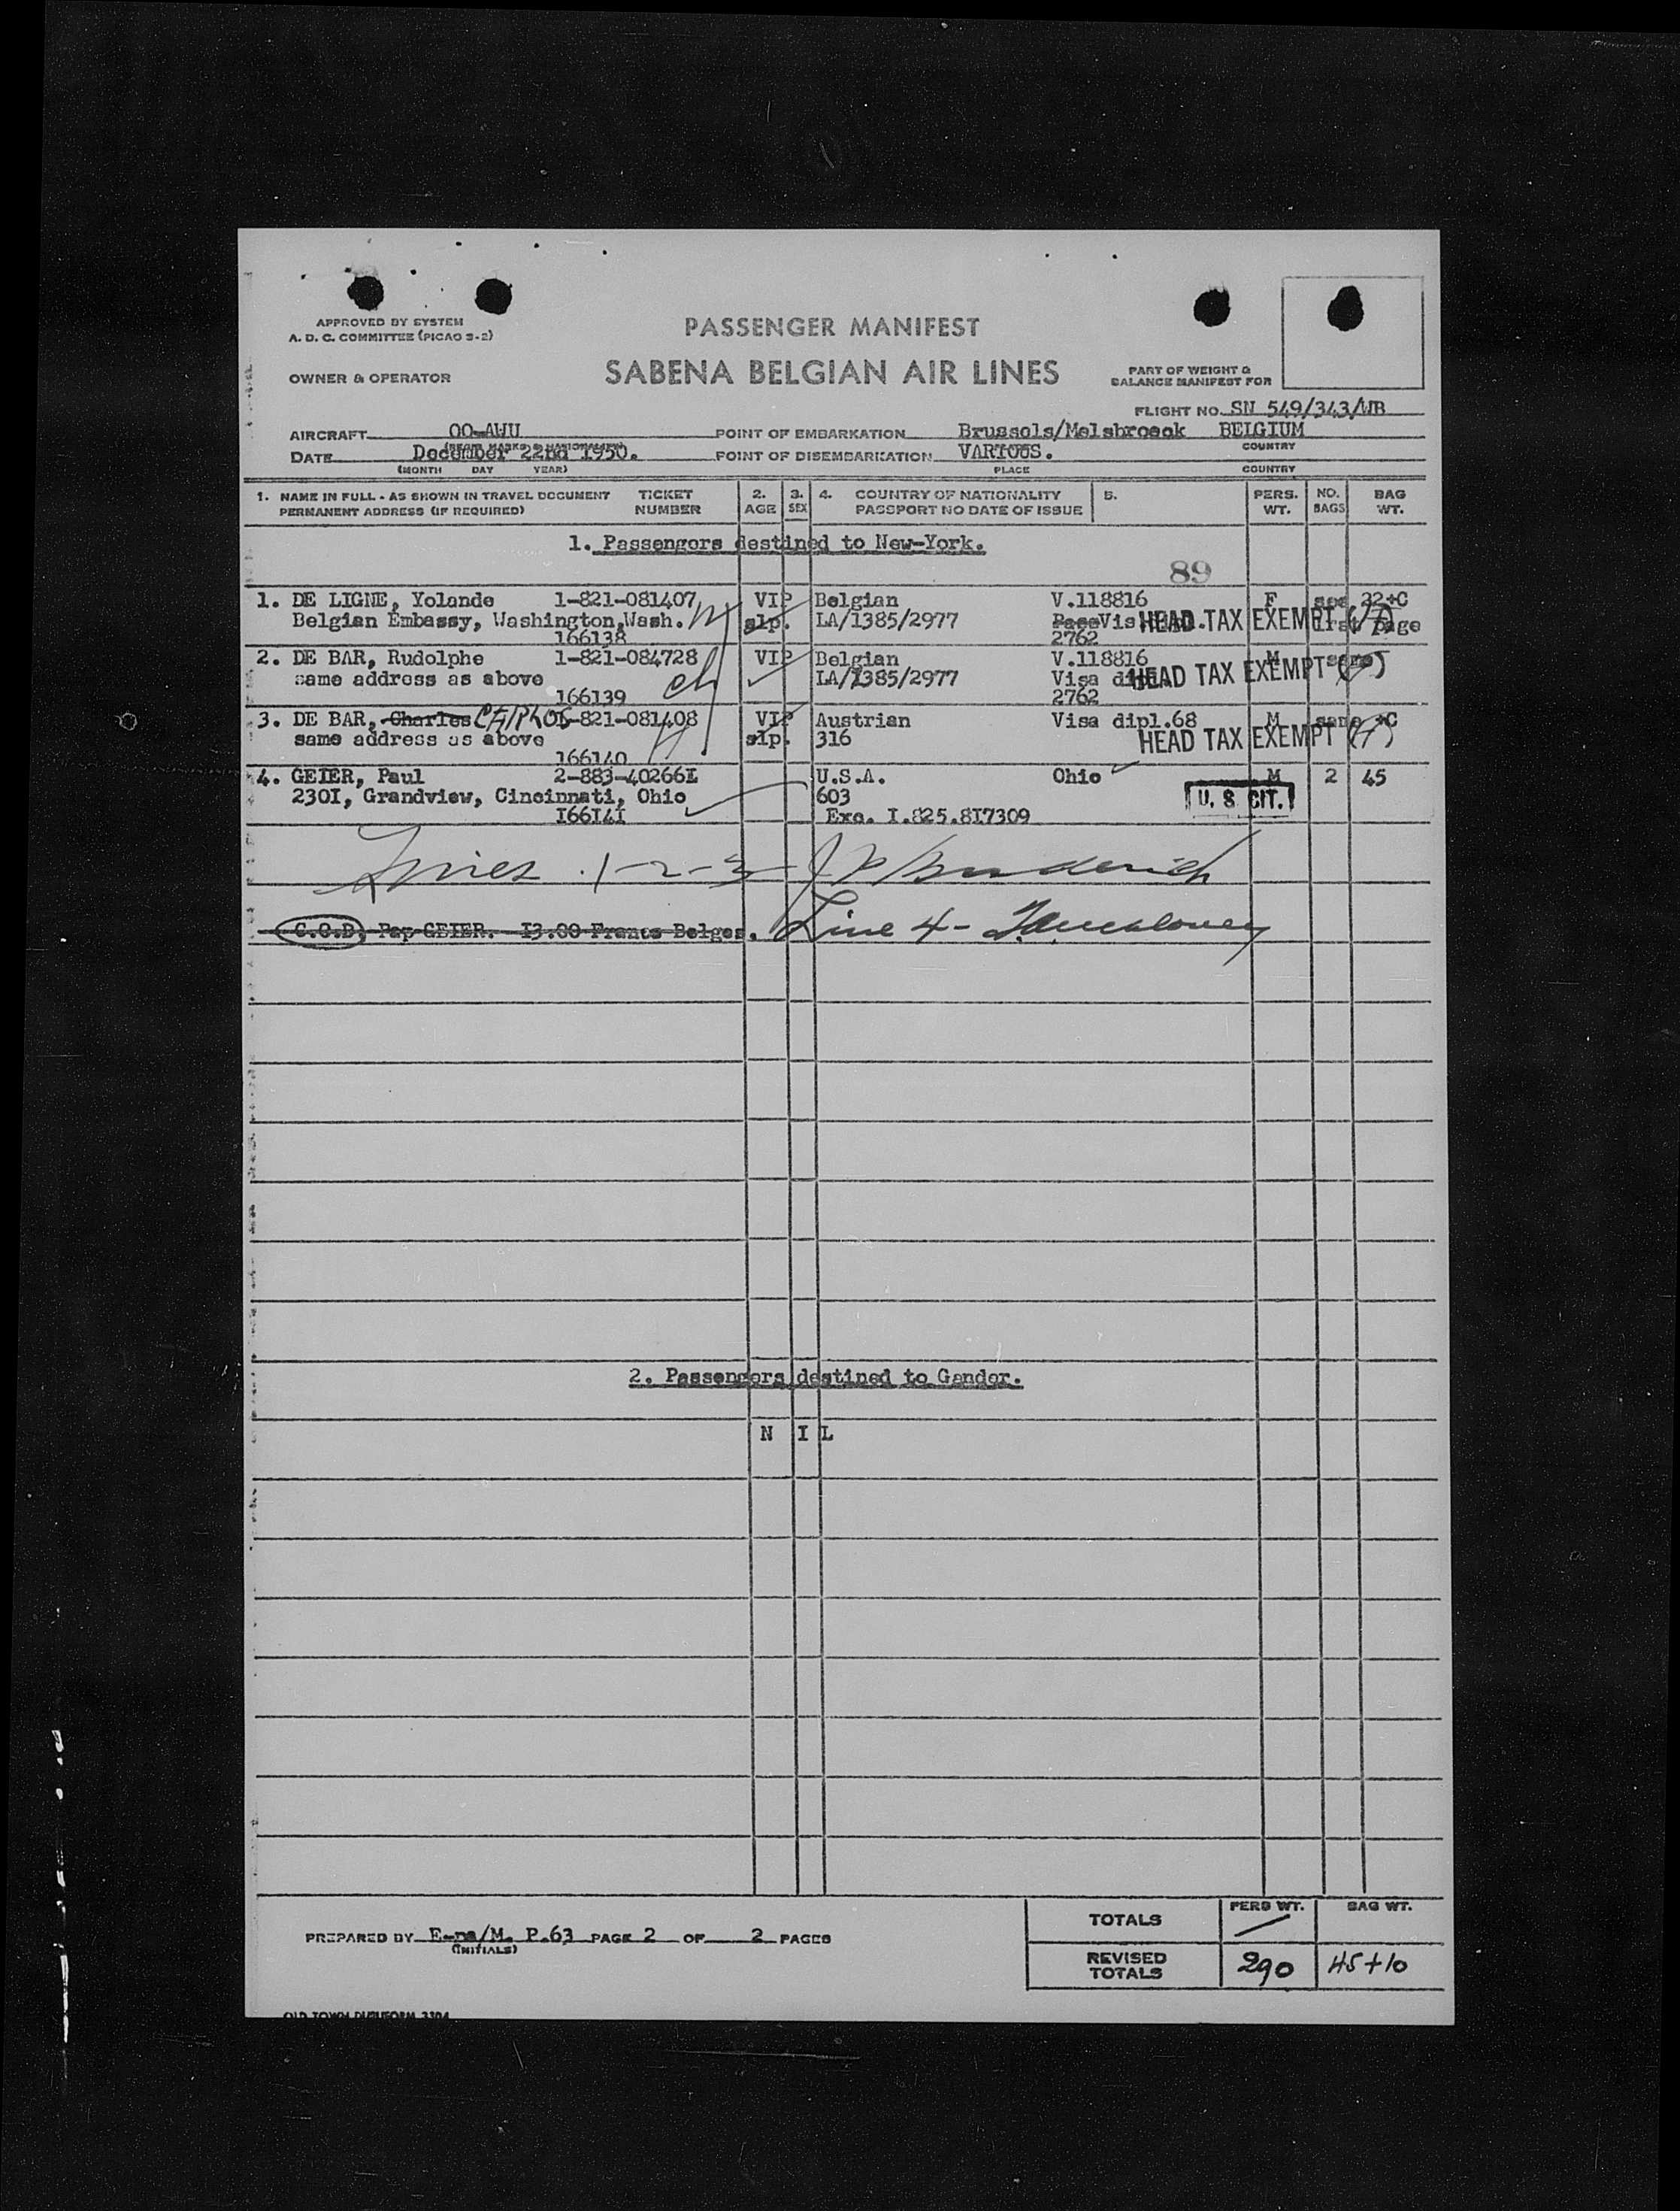 APPROVED BY SYSTEM
A. D. C. COMMITTEE (PICAO S-2)
PASSENGER MANIFEST
SABENA BELGIAN AIR LINES
OWNER & OPERATOR
PART OF WEIGHT &
BALANCE MANIFEST FOR
FLIGHT NO. SN 549/343/WB
AIRCRAFT OO-AWU POINT OF EMBARKATION Brussels/Melsbroeck BELGIUM
DATE December 22nd 1950. POINT OF DISEMBARKATION VARIOUS. COUNTRY
(MONTH DAY YEAR) PLACE COUNTRY
1. NAME IN FULL - AS SHOWN IN TRAVEL DOCUMENT TICKET 2. 3. 4. COUNTRY OF NATIONALITY 5. PERS. NO. BAG
PERMANENT ADDRESS (IF REQUIRED) NUMBER AGE SEX PASSPORT NO DATE OF ISSUE WT. BAGS WT.
1. Passengers destined to New-York.
89
1. DE LIGNE, Yolande 1-821-081407 VIP Belgian V.118816 F see 22+C
Belgian Embassy, Washington,Wash. slp. LA/1385/2977 HEAD TAX EXEMPT page
166138 2762
2. DE BAR, Rudolphe 1-821-084728 VIP Belgian V.118816 M same
same address as above LA/1385/2977 Visa HEAD TAX EXEMPT
166139 2762
3. DE BAR, Charles 1-821-081408 VIP Austrian Visa dipl.68 M same +C
same address as above slp. 316 HEAD TAX EXEMPT
166140
4. GEIER, Paul 2-883-40266I U.S.A. Ohio M 2 45
230I, Grandview, Cincinnati, Ohio 603 U. S CIT.
I66I4I Exc. I.825.8I7309
Lines 1-2-3
C.O.D. Pap GEIER. I3.00 Francs Belges. Line 4 -
2. Passengers destined to Gander.
N I L
PERS WT. BAG WT.
TOTALS
PREPARED BY E-na/M. P.63 PAGE 2 OF 2 PAGES
(INITIALS)
REVISED TOTALS 290 45+10
OLD TOWN DUPLIFORM 3304